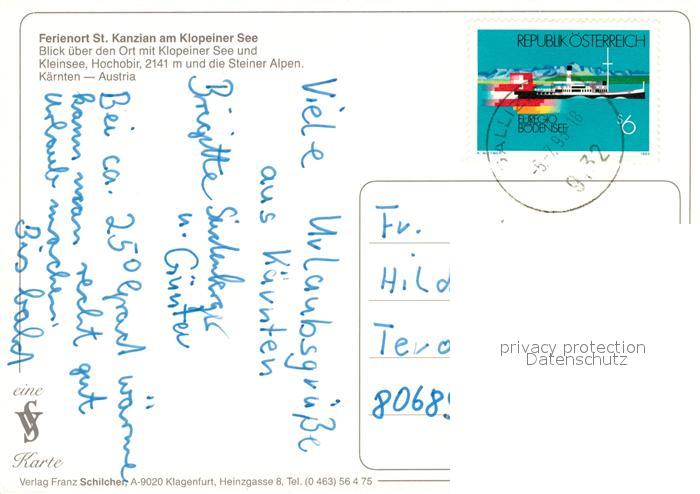 Ferienort St. Kanzian am Klopeiner See
Blick über den Ort mit Klopeiner See und
Kleinsee, Hochobir, 2141 m und die Steiner Alpen.
Kärnten — Austria
REPUBLIK ÖSTERREICH
EUREGIO
BODENSEE
S6
9132
Viele Urlaubsgrüße
aus Kärnten
Brigitte
u. Günter
Bei ca. 25° Grad wärme
kann man recht gut
Urlaub machen
Bis bald
Fr.
Hild
80689
privacy protection
Datenschutz
eine
VS
Karte
Verlag Franz Schilcher, A-9020 Klagenfurt, Heinzgasse 8, Tel. (0 463) 56 4 75